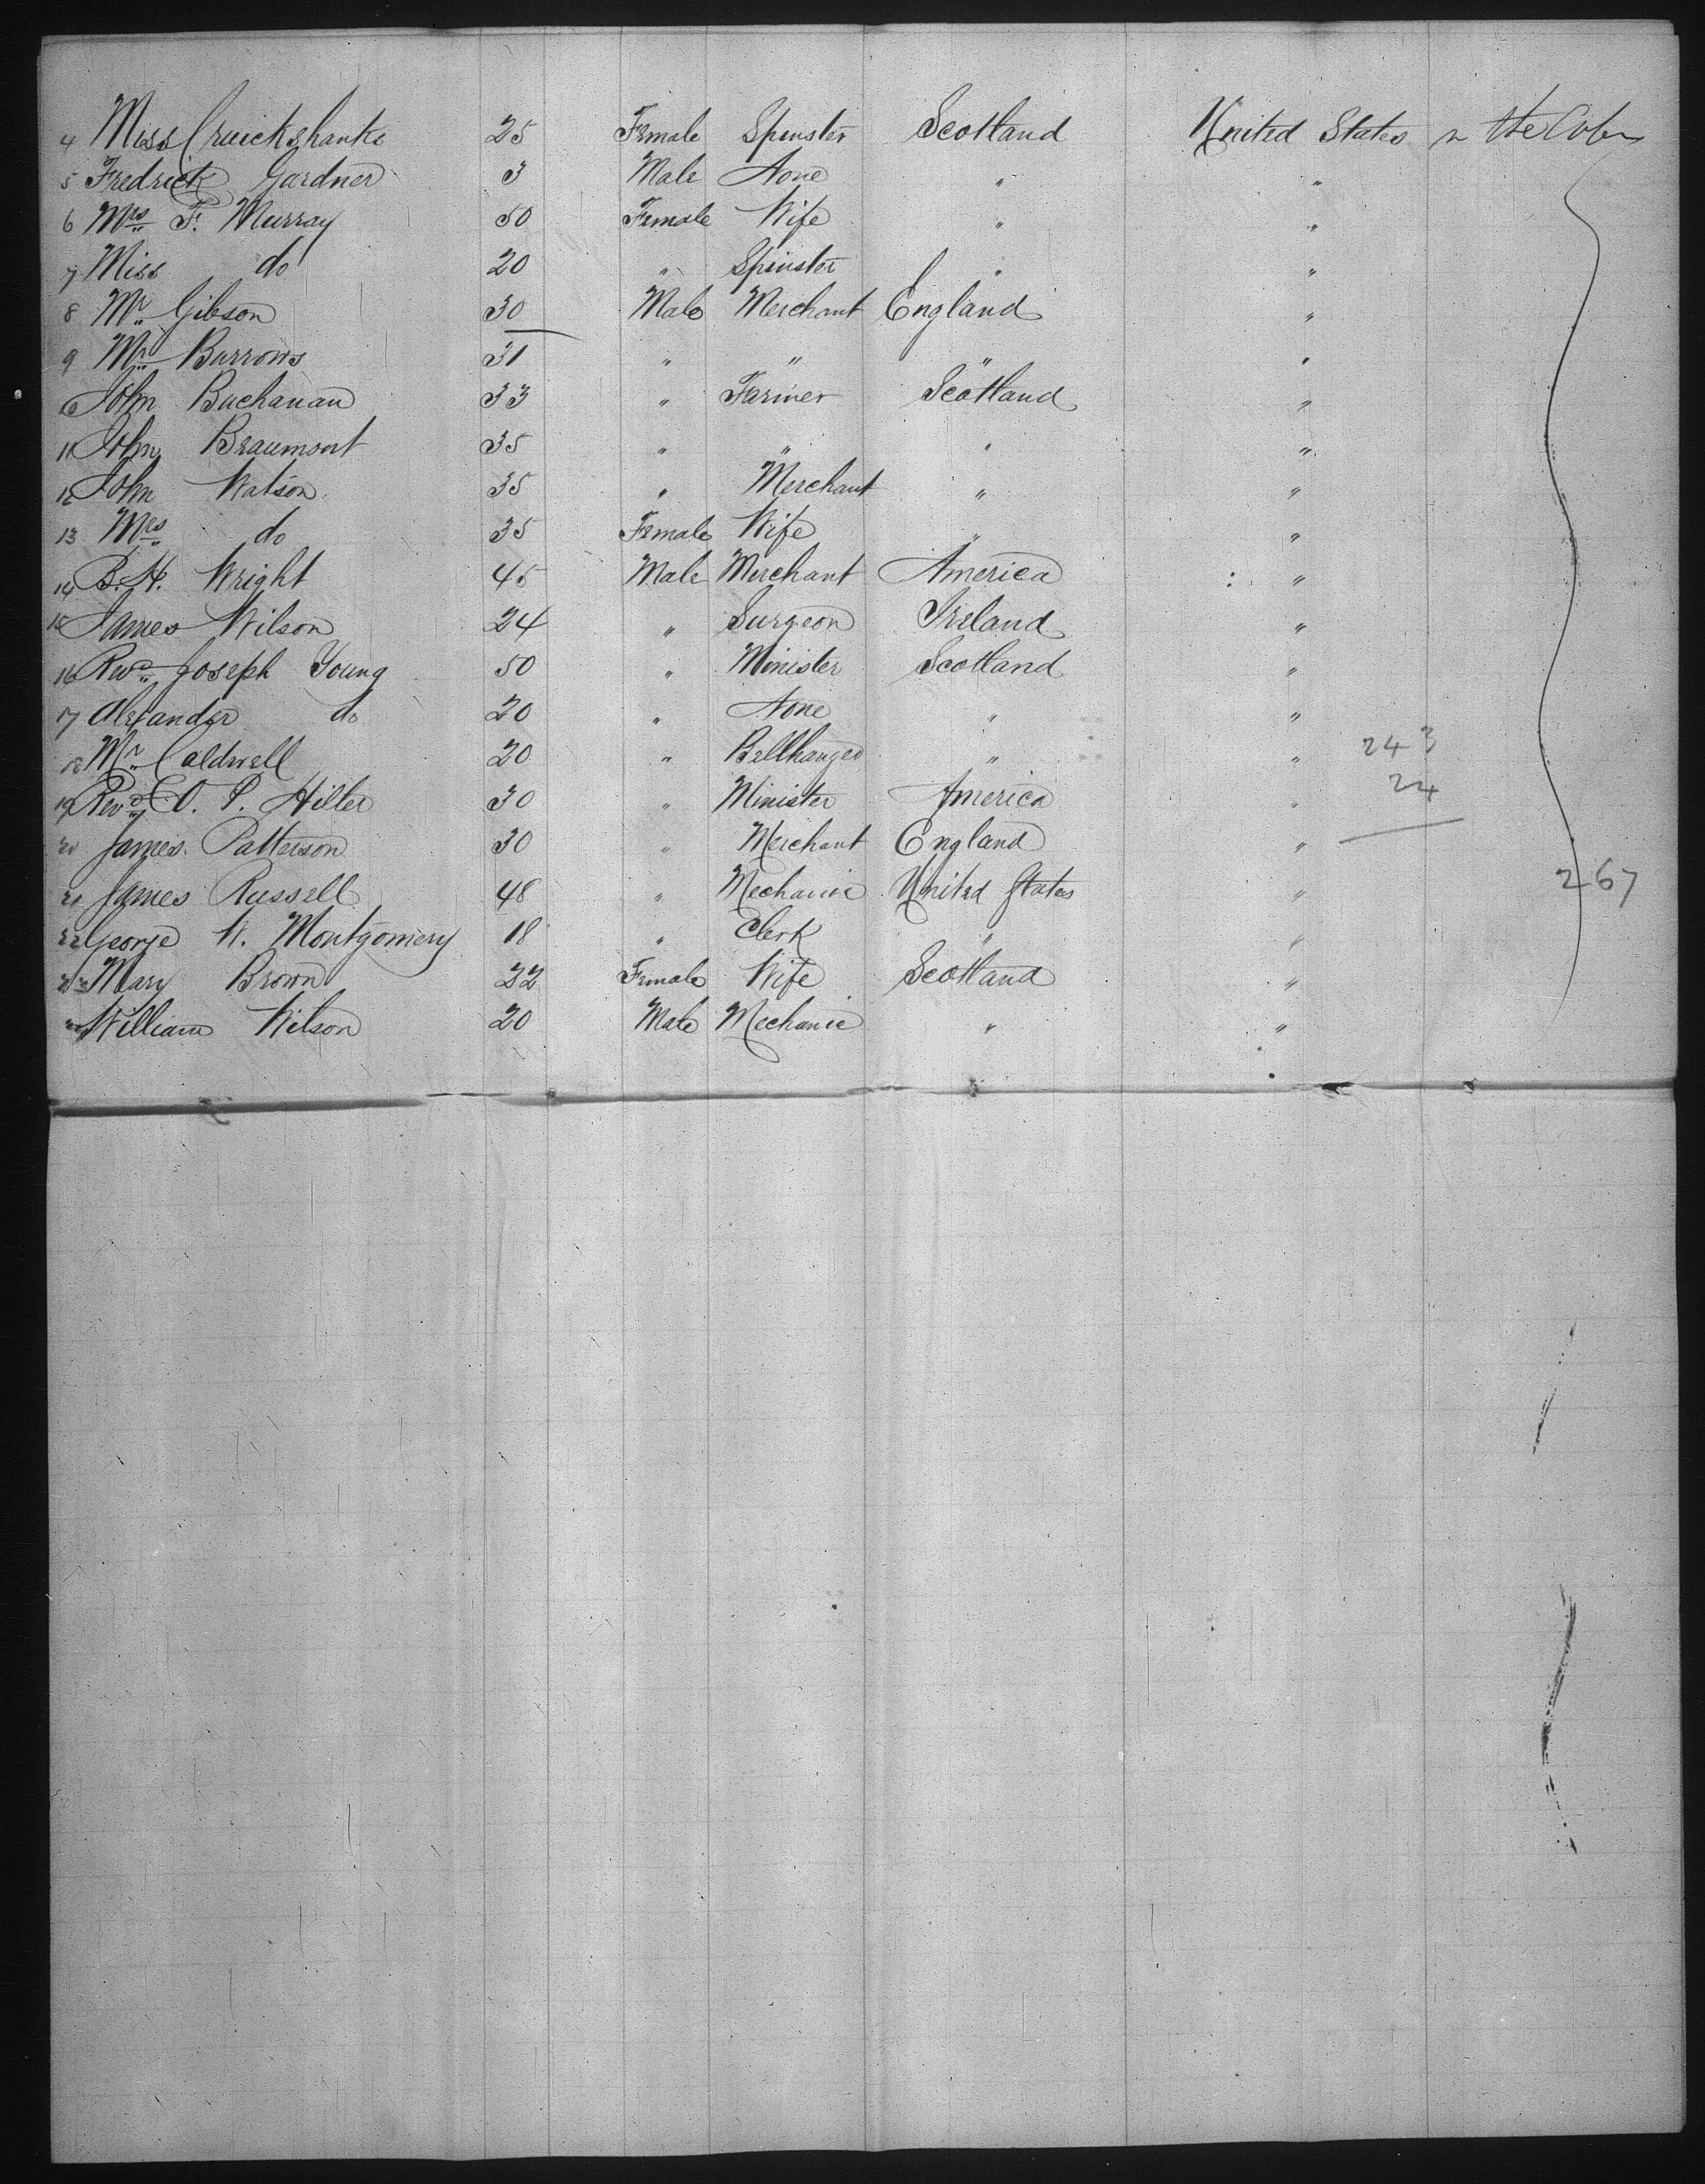 4 Miss Cruickshanks 25 Female Spinster Scotland United States in the Cabin
5 Fredrick Gardner 3 Male None " "
6 Mrs F. Murray 50 Female Wife " "
7 Miss do 20 " Spinster " "
8 Mr Gibson 30 Male Merchant England "
9 Mr Burrows 31 " " " "
10 John Buchanan 33 " Farmer Scotland "
11 John Braumont 35 " " " "
12 John Watson 35 " Merchant " "
13 Mrs do 35 Female Wife " "
14 B. H. Wright 45 Male Merchant America "
15 James Wilson 24 " Surgeon Ireland "
16 Revd Joseph Young 50 " Minister Scotland "
17 Alexander do 20 " None " "
18 Mr Caldwell 20 " Bellhanger " " 243
19 Revd O. P. Hiller 30 " Minister America " 24
20 James Patterson 30 " Merchant England "
21 James Russell 48 " Mechanic United States " 267
22 George W. Montgomery 18 " Clerk " "
23 Mary Brown 22 Female Wife Scotland "
24 William Wilson 20 Male Mechanic " "